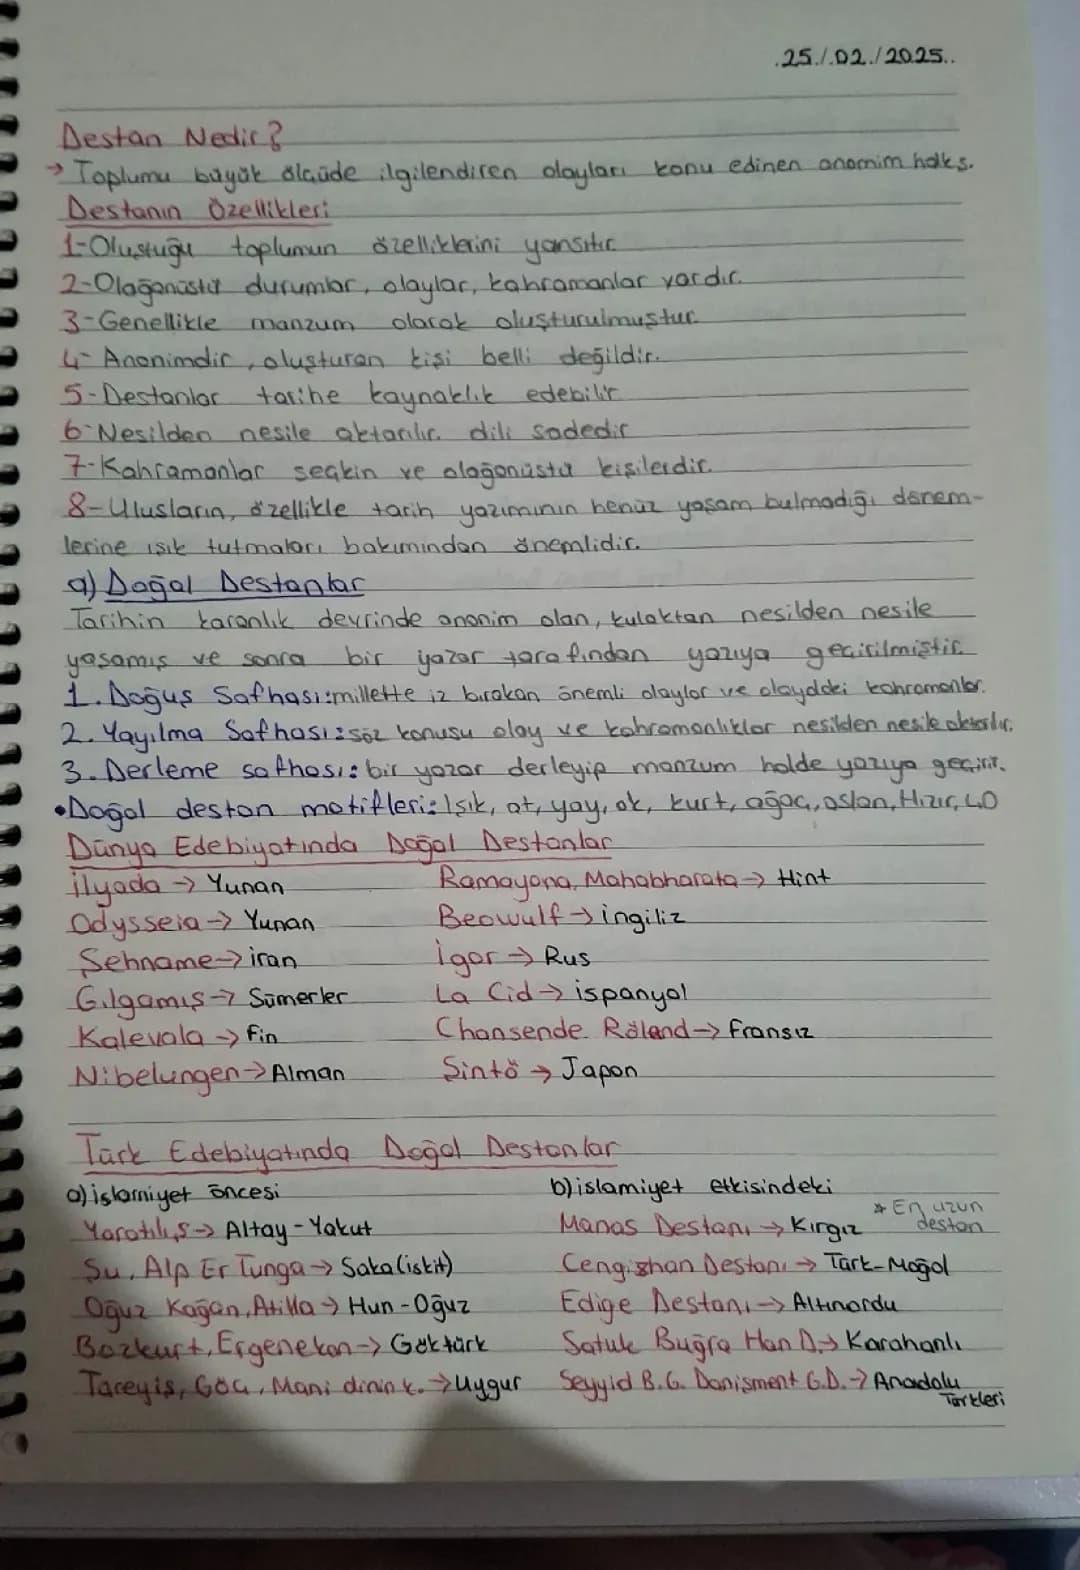 .25./.02./2025..
Destan Nedir?
→ Toplumu büyük ölçüde ilgilendiren olayları konu edinen anonim halk s.
Destanın Özellikleri
1-Oluştuğu toplumun özelliklerini yansıtır.
2-Olağanüstü durumlar, olaylar, kahramanlar vardır.
3-Genellikle manzum olarak oluşturulmuştur.
4-Anonimdir, oluşturan kişi belli değildir.
5-Destanlar tarihe kaynaklık edebilir
6-Nesilden nesile aktarılır. dili sadedir
7-Kahramanlar seçkin ve olağanüstü kişilerdir.
8-Ulusların, özellikle tarih yazımının henüz yaşam bulmadığı dönem-
lerine ışık tutmaları bakımından önemlidir.
a) Doğal Destanlar
Tarihin karanlık devrinde anonim olan, kulaktan nesilden nesile
yaşamış ve sonra bir yazar tarafından yazıya geçirilmiştir.
1. Doğuş Safhası: millette iz bırakan önemli olaylar ve olaydaki kahramanlar.
2. Yayılma Safhası: söz konusu olay ve kahramanlıklar nesilden nesile aktarılır.
3. Derleme safhası: bir yazar derleyip manzum halde yazıya geçirir.
•Doğal destan motifleri: Işık, at, yay, ok, kurt, ağaç, aslan, Hızır, 40
Dünya Edebiyatında Doğal Destanlar
İlyada → Yunan Ramayana, Mahabharata → Hint
Odysseia → Yunan Beowulf → ingiliz
Şehname → iran İgor → Rus
Gılgamış → Sümerler La Cid → ispanyol
Kalevala → Fin Chansende Röland → Fransız
Nibelungen → Alman Şintö → Japon
Türk Edebiyatında Doğal Destanlar
a) islamiyet öncesi b) islamiyet etkisindeki
Yaratılış → Altay-Yakut Manas Destanı → Kırgız * En uzun destan
Şu, Alp Er Tunga → Saka (iskit) Cengizhan Destanı → Türk-Moğol
Oğuz Kağan, Atilla → Hun-Oğuz Edige Destanı → Altınordu
Bozkurt, Ergenekon → Göktürk Satuk Buğra Han D. → Karahanlı
Türeyiş, Göç, Mani dinin k. → Uygur Seyyid B.G. Danişment G.D. → Anadolu Türkleri